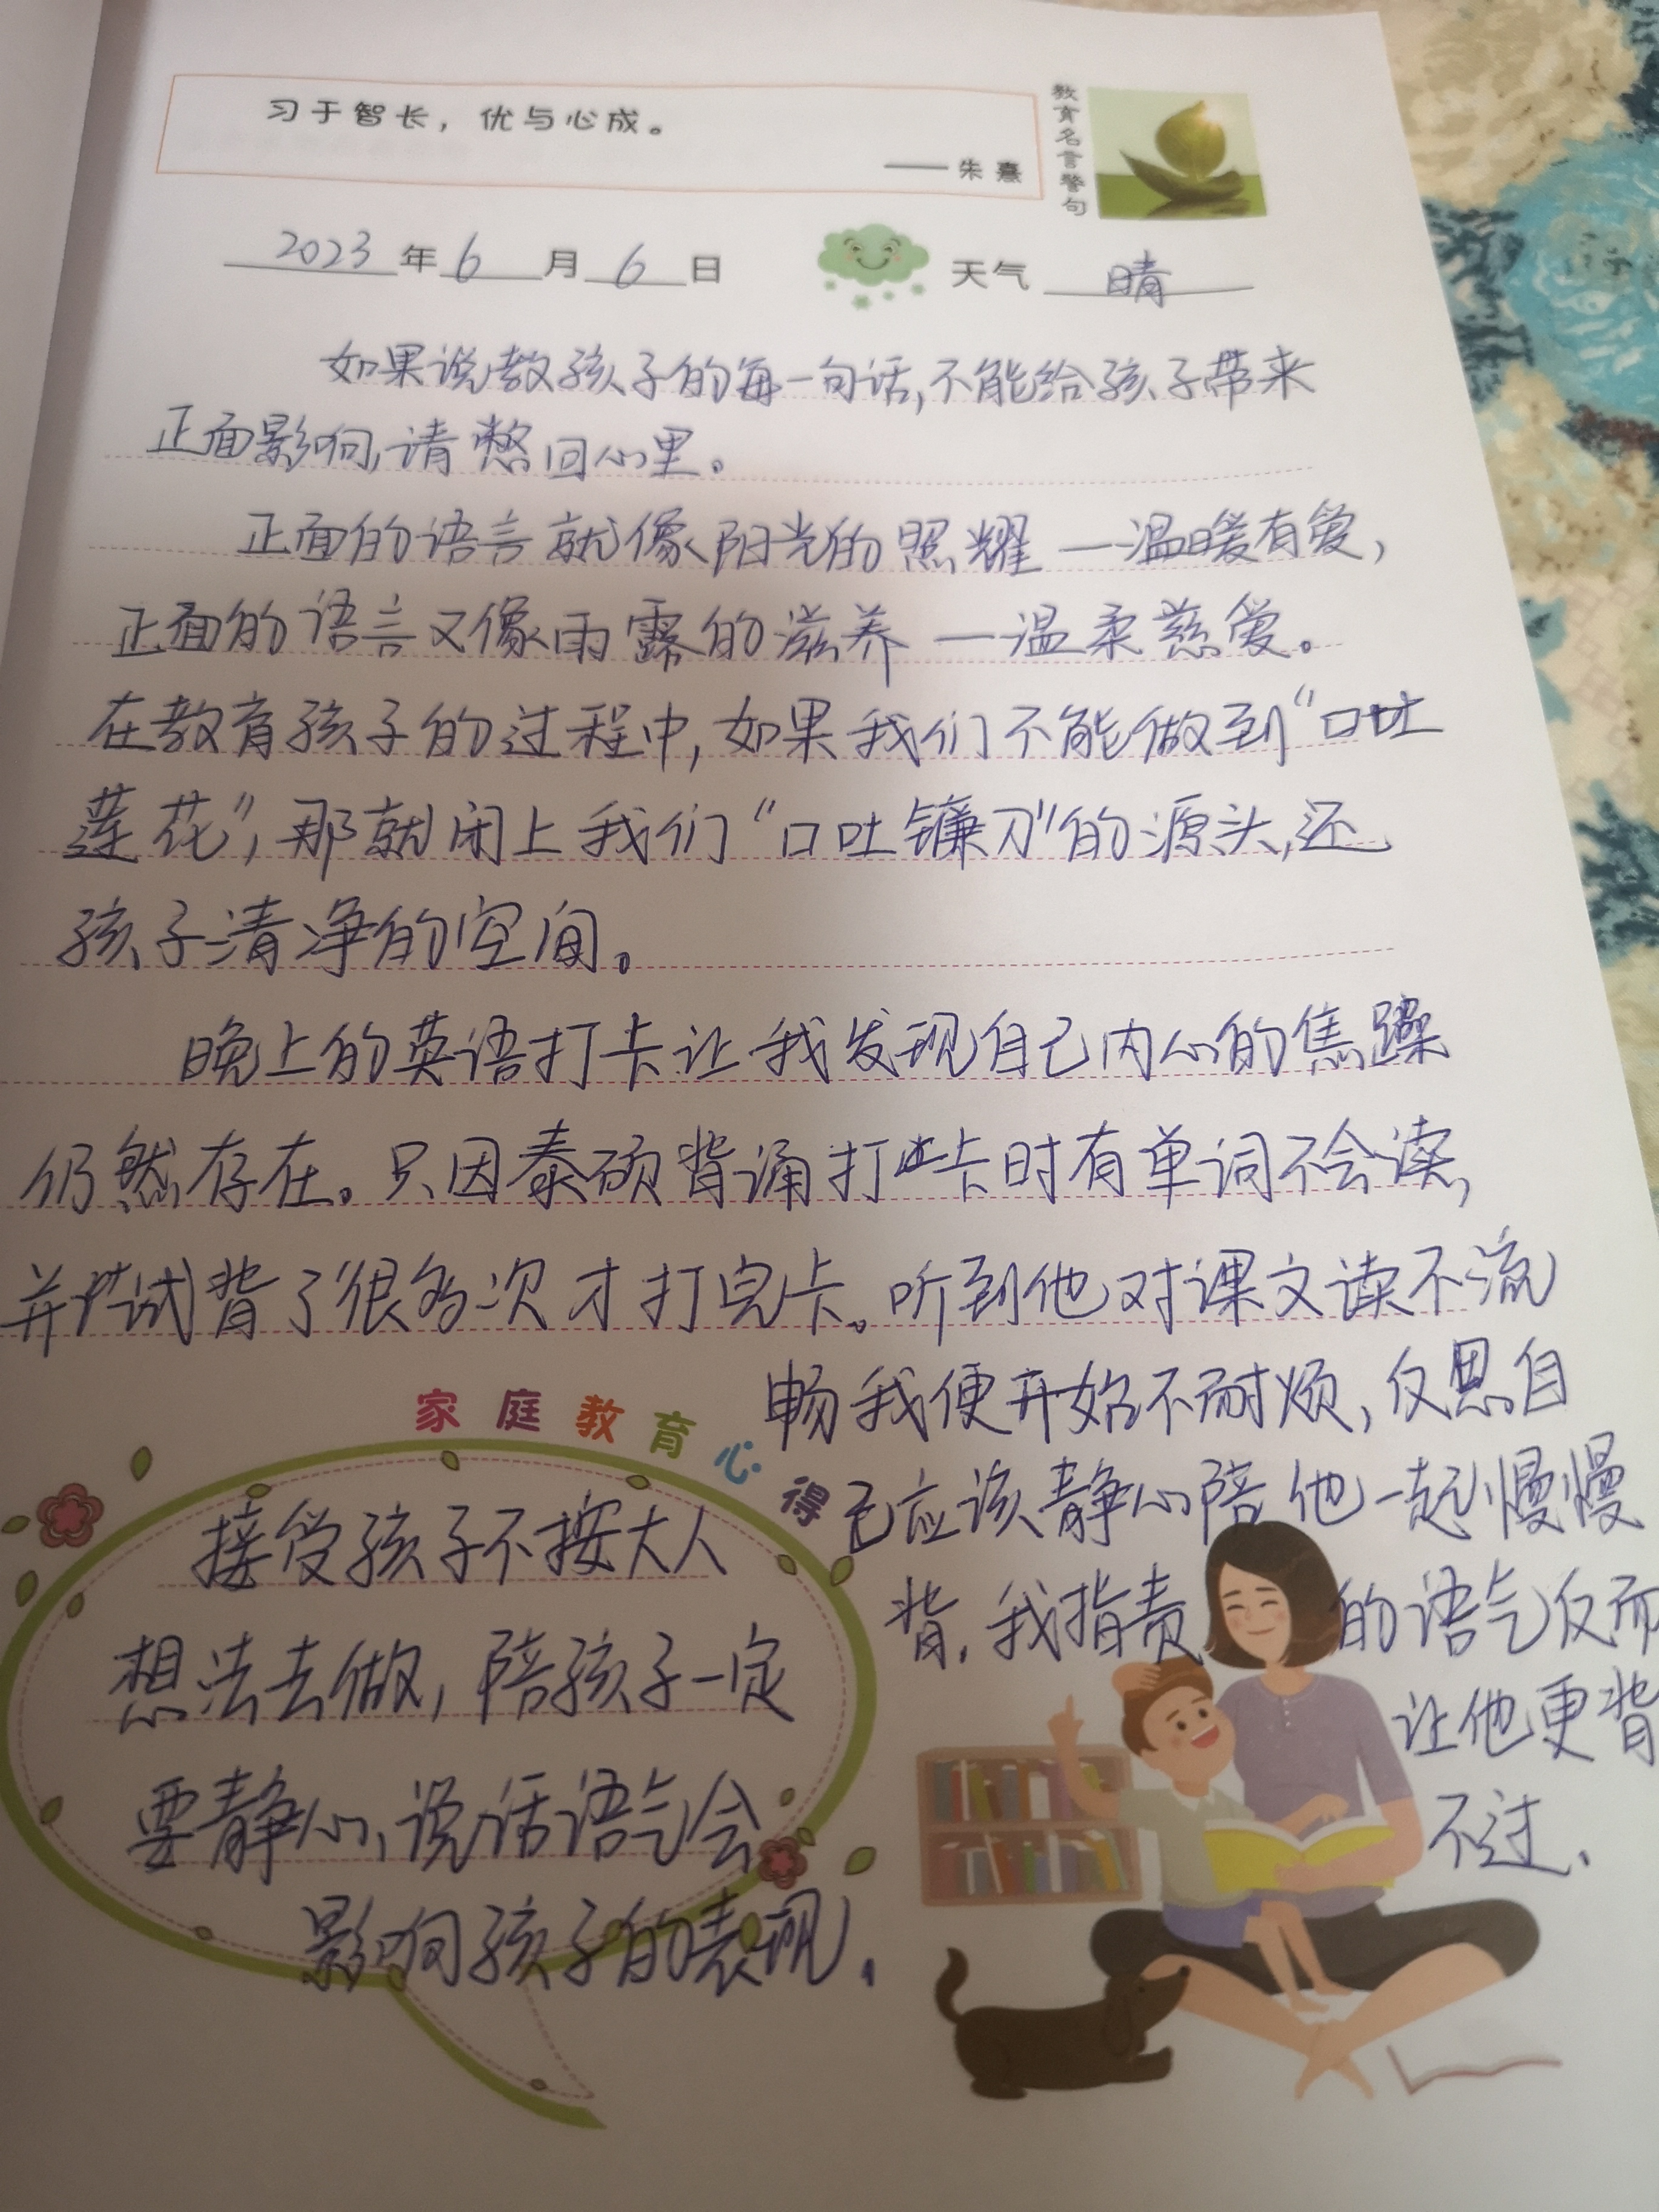 习于智长，优与心成。
——朱熹
教育名言警句
2023年6月6日
天气 晴
如果说教孩子的每一句话,不能给孩子带来
正面影响,请憋回心里。
正面的语言就像阳光的照耀—温暖有爱,
正面的语言又像雨露的滋养—温柔慈爱。
在教育孩子的过程中,如果我们不能做到“口吐
莲花”,那就闭上我们“口吐镰刀”的源头,还
孩子清净的空间。
晚上的英语打卡让我发现自己内心的焦躁
仍然存在。只因泰硕背诵打卡时有单词不会读,
并试背了很多次才打完卡。听到他对课文读不流
畅我便开始不耐烦,仅思自
己应该静心陪他一起慢慢
背.我指责的语气仅而
让他更背
不过.
家庭教育心得
接受孩子不按大人
想法去做,陪孩子一定
要静心,说话语气会
影响孩子的表现.